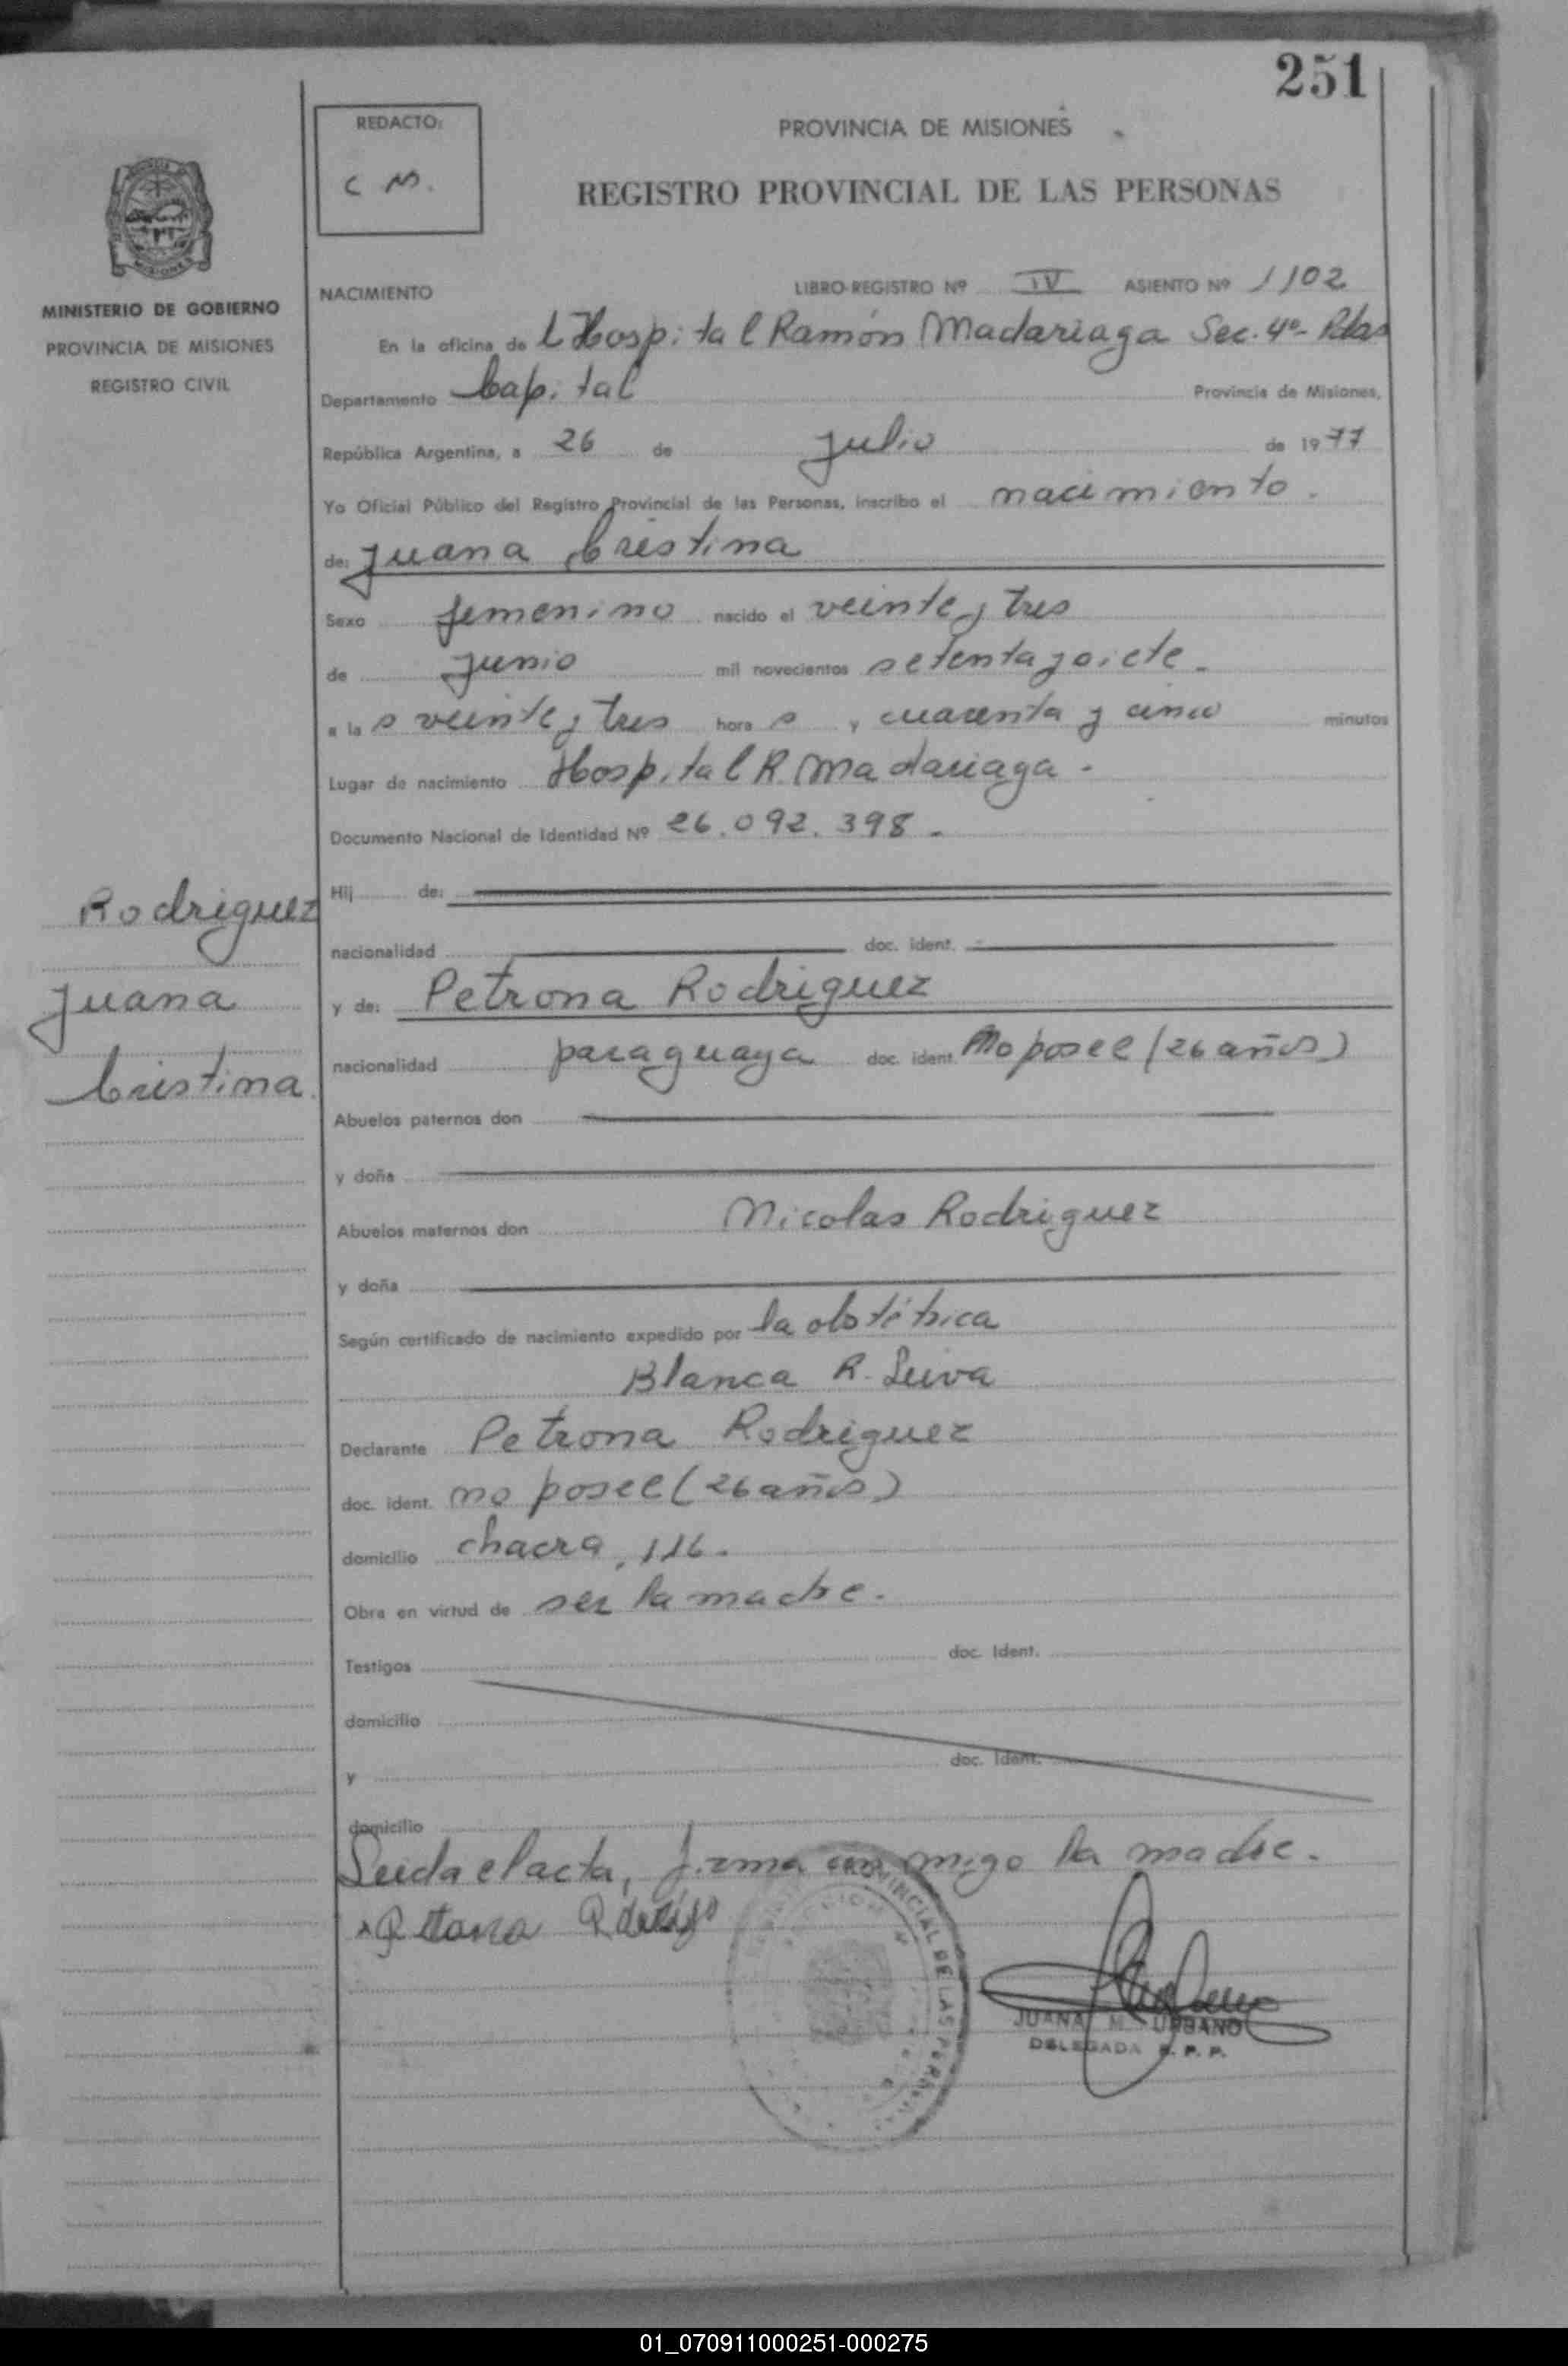 251
REDACTO:
C M.
PROVINCIA DE MISIONES
REGISTRO PROVINCIAL DE LAS PERSONAS
MINISTERIO DE GOBIERNO
PROVINCIA DE MISIONES
REGISTRO CIVIL
NACIMIENTO LIBRO-REGISTRO Nº IV ASIENTO Nº 1102
En la oficina de l Hospital Ramón Madariaga Sec. 4º- Pdas
Departamento Capital Provincia de Misiones,
República Argentina, a 26 de Julio de 1977
Yo Oficial Público del Registro Provincial de las Personas, inscribo el nacimiento.
de: Juana Cristina
Sexo femenino nacido el veinte y tres
de Junio mil novecientos setenta y siete.
a la s veinte y tres hora s y cuarenta y cinco minutos
Lugar de nacimiento Hospital R. Madariaga.
Documento Nacional de Identidad Nº 26.092.398.
Hij de:
nacionalidad doc. ident.
y de: Petrona Rodriguez
nacionalidad paraguaya doc. ident. No posee (26 años)
Abuelos paternos don
y doña
Abuelos maternos don Nicolas Rodriguez
y doña
Según certificado de nacimiento expedido por la obstétrica
Blanca R. Leiva
Declarante Petrona Rodriguez
doc. ident. no posee (26 años)
domicilio chacra, 116.
Obra en virtud de ser la madre.
Testigos doc. Ident.
domicilio
y doc. Ident.
domicilio
Leida el acta, firma conmigo la madre.
JUANA M. URBANO
DELEGADA R. P. P.
PROVINCIAL DE LAS PERSONAS
Rodriguez
Juana
Cristina.
01_070911000251-000275